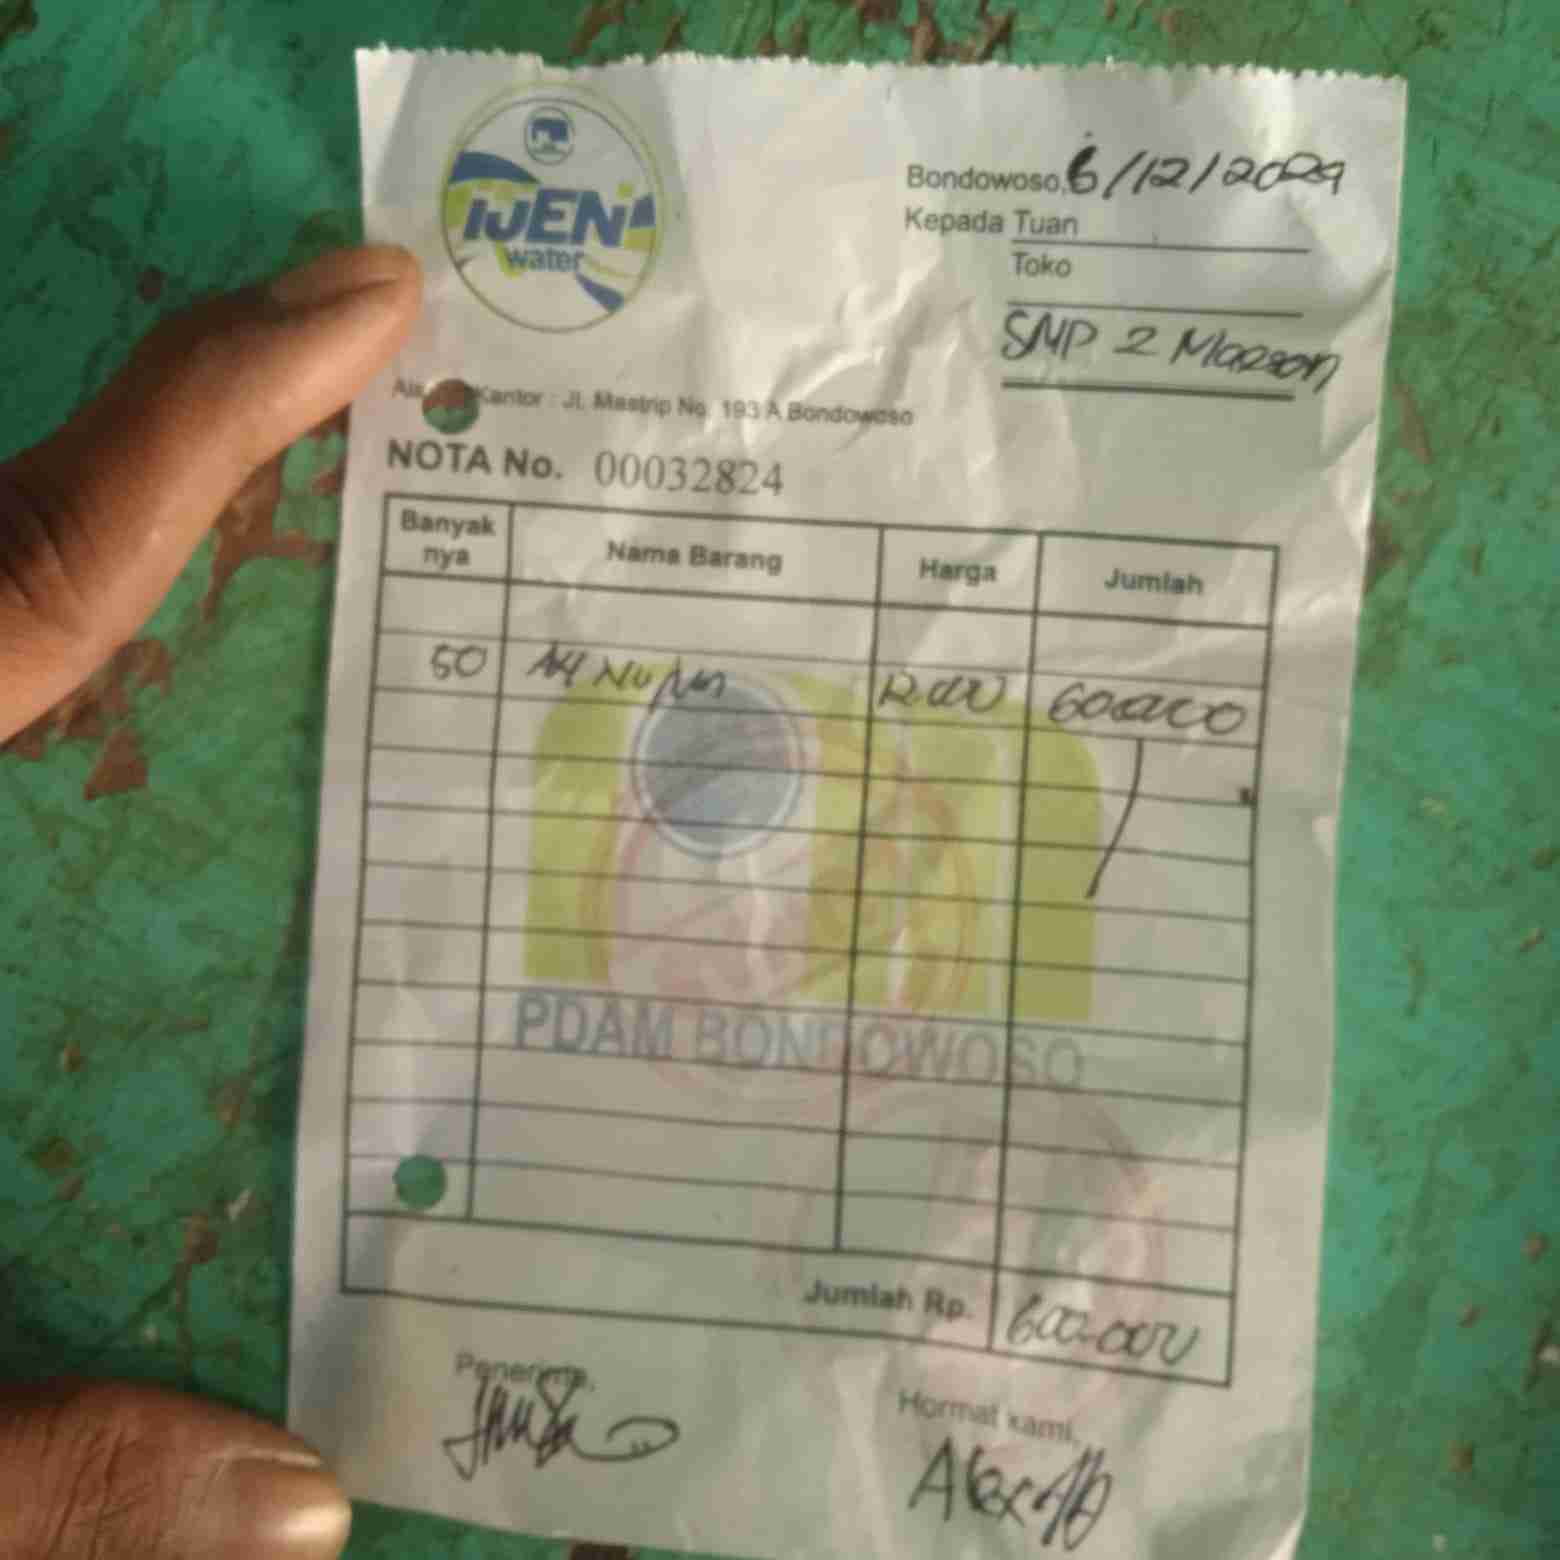 IJEN
water
Bondowoso, 6/12/2024
Kepada Tuan
Toko
SMP 2 Maesan
Kantor : Jl. Mastrip No. 193 A Bondowoso
NOTA No. 00032824
Banyak nya Nama Barang Harga Jumlah
50 12.000 600.000
PDAM BONDOWOSO
Jumlah Rp. 600.000
Penerima,
Hormat kami,
Alex